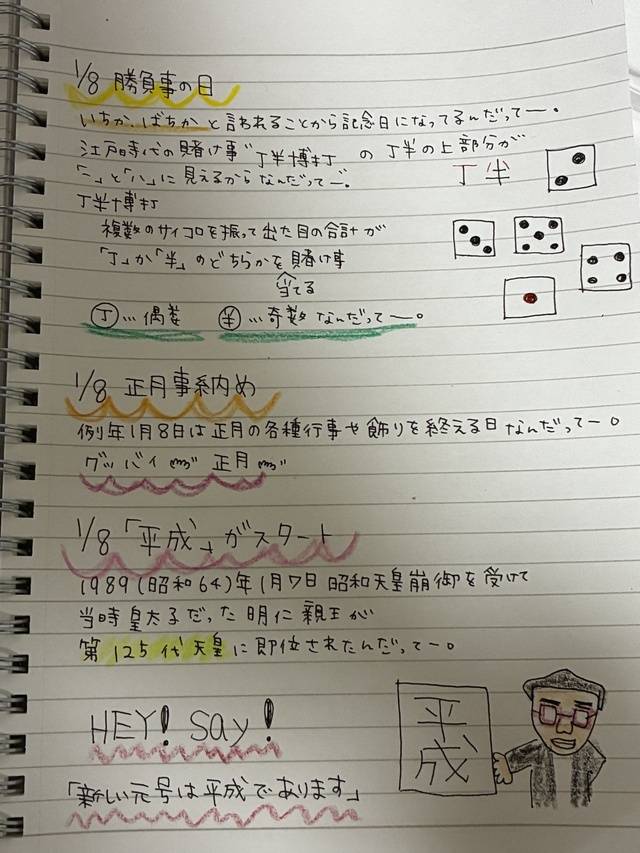 1/8 勝負事の日
いちか、ばちか と言われることから記念日になってるんだってー。
江戸時代の賭け事"丁半博打"の 丁半の上部分が
「一」と「八」に見えるからなんだってー。
丁半
丁半博打
複数のサイコロを振って出た目の合計が
「丁」か「半」のどちらかを賭け事
当てる
丁…偶数 半…奇数 なんだってー。
1/8 正月事納め
例年1月8日は正月の各種行事や飾りを終える日なんだってー。
グッバイ 正月
1/8「平成」がスタート
1989(昭和64)年1月7日 昭和天皇崩御を受けて
当時皇太子だった明仁親王が
第125代天皇に即位されたんだってー。
HEY! Say!
平成
「新しい元号は平成であります」